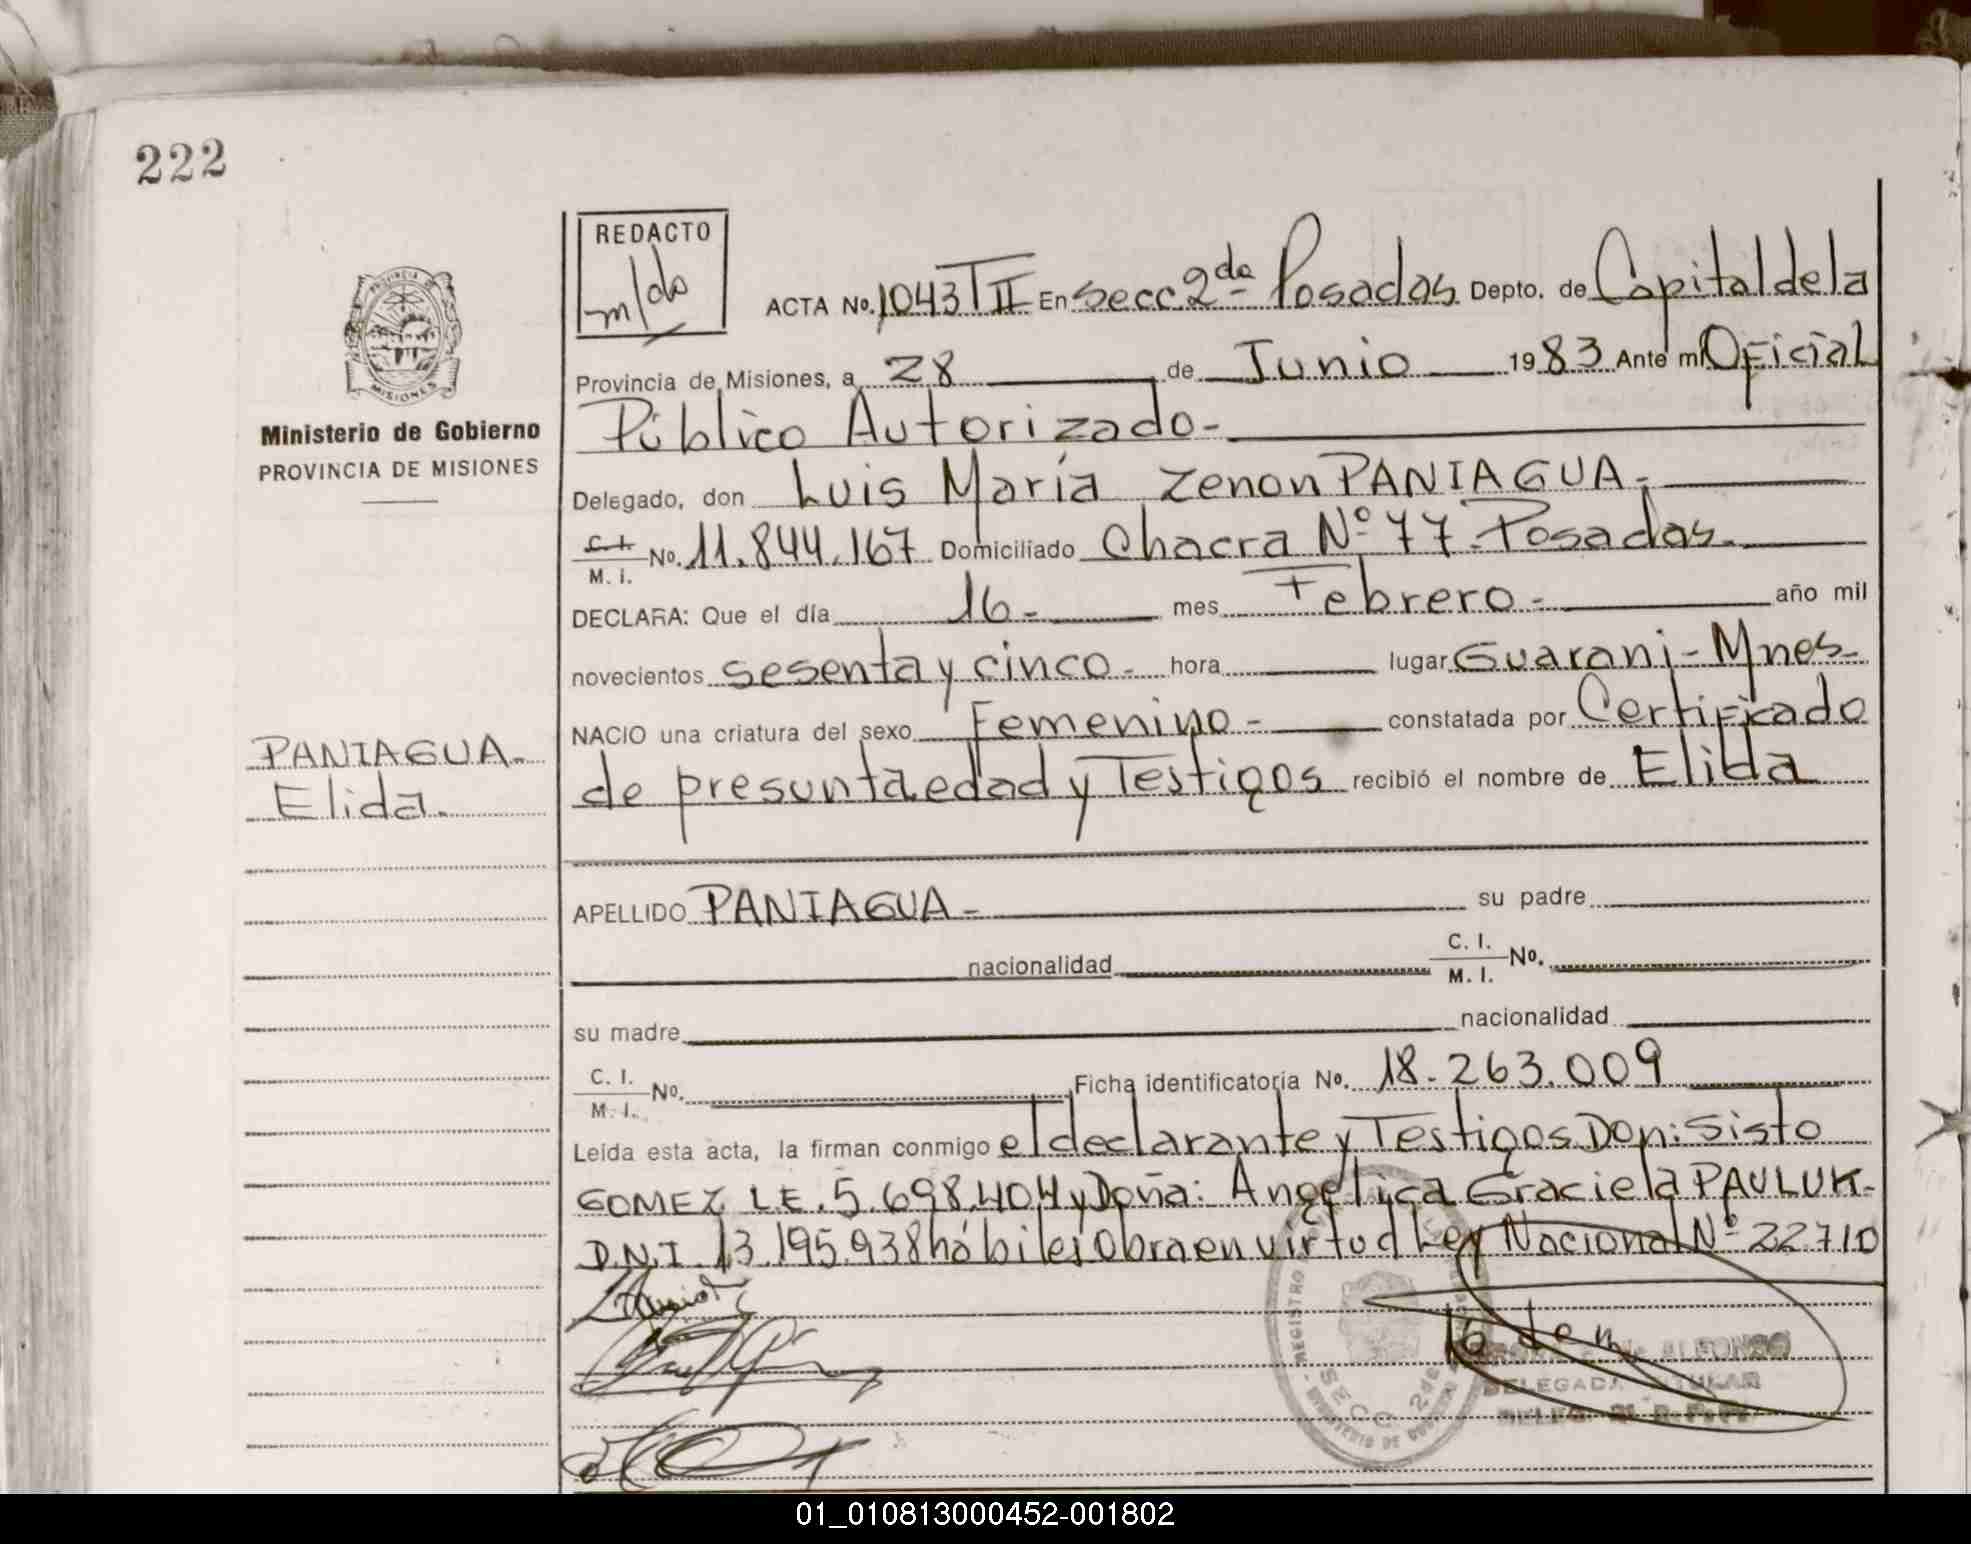 222
REDACTO
m/do
ACTA No. 1043 T II En Secc 2da Posadas Depto. de Capital de la
Provincia de Misiones, a 28 de Junio 1983 Ante mí Oficial
Público Autorizado-
Delegado, don Luis María Zenon PANIAGUA.
C.I. M. I. No. 11.844.167 Domiciliado Chacra Nº 77-Posadas.
DECLARA: Que el día 16- mes Febrero- año mil
novecientos sesenta y cinco- hora lugar Guarani-Mnes-
NACIO una criatura del sexo Femenino- constatada por Certificado
de presunta edad y Testigos recibió el nombre de Elida
APELLIDO PANIAGUA- su padre
nacionalidad C. I. M. I. No.
su madre nacionalidad
C. I. M. I. No. Ficha identificatoria No. 18.263.009
Leída esta acta, la firman conmigo el declarante y Testigos Don: Sisto
GOMEZ L.E. 5.698.404 y Doña: Angelica Graciela PAULUK-
D.N.I. 13.195.938 hábiles Obra en virtud Ley Nacional Nº 22710
PROVINCIA DE MISIONES
Ministerio de Gobierno
PROVINCIA DE MISIONES
PANIAGUA.
Elida.
REGISTRO
SECC 2da
MINISTERIO DE
de ALFONSO
DELEGADA TITULAR
01_010813000452-001802